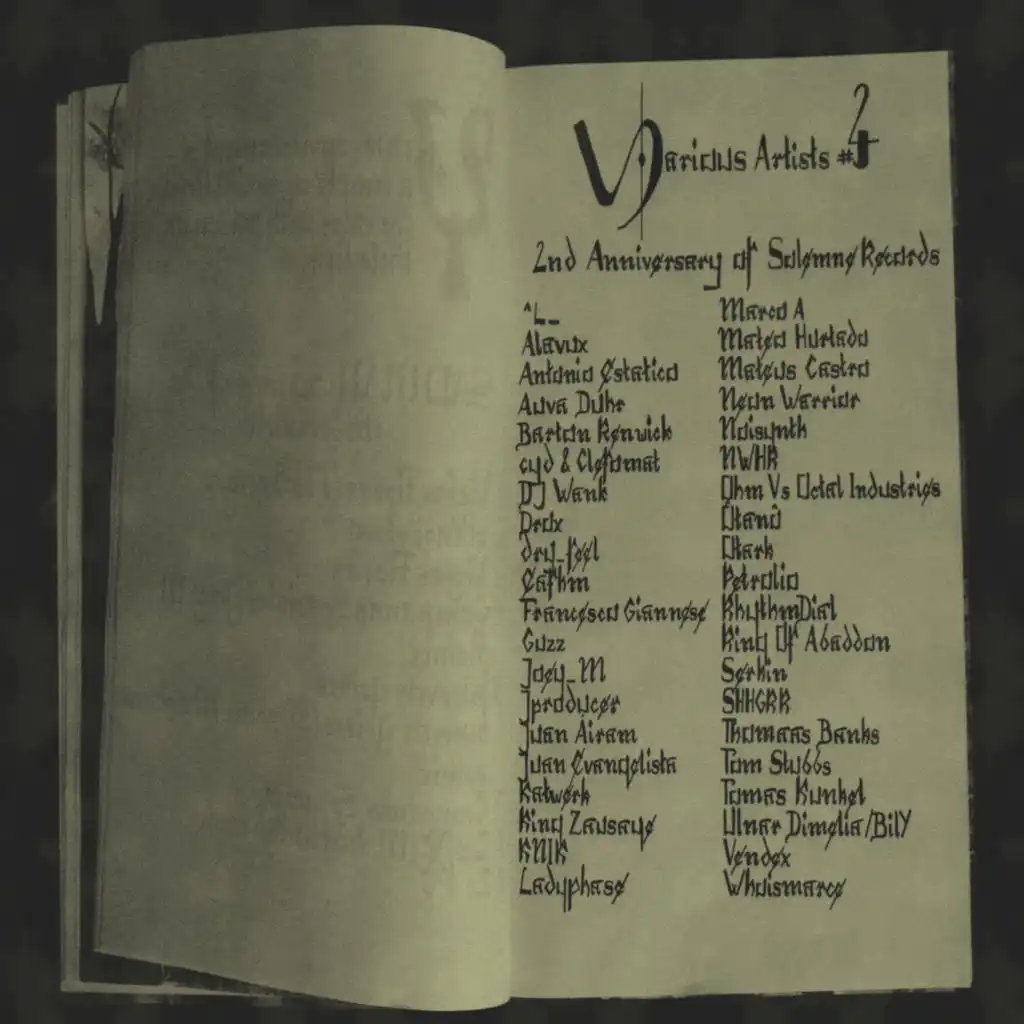 Various Artists #4
2nd Anniversary of Solemne Records
^L_
Alavux
Antonio Estatico
Auva Duhr
Barton Renwick
cyd & Clefomat
DJ Wank
Drax
dry_feel
Eafhm
Francesco Giannese
Guzz
Joey_M
Jproducer
Juan Airam
Juan Evangelista
Katwerk
King Zausage
KNIK
Ladyphase
Marco A
Mateo Hurtado
Mateus Castro
Neon Warrior
Noisynth
NWHR
Ohm Vs Octal Industries
Otanö
Otark
Petrolio
RhythmDial
Ring Of Abaddon
Serkin
SHHGRR
Thomaas Banks
Tom Stubbs
Tomas Kunkel
Ulnar Dimelia/BilY
Vendex
Whoismarco